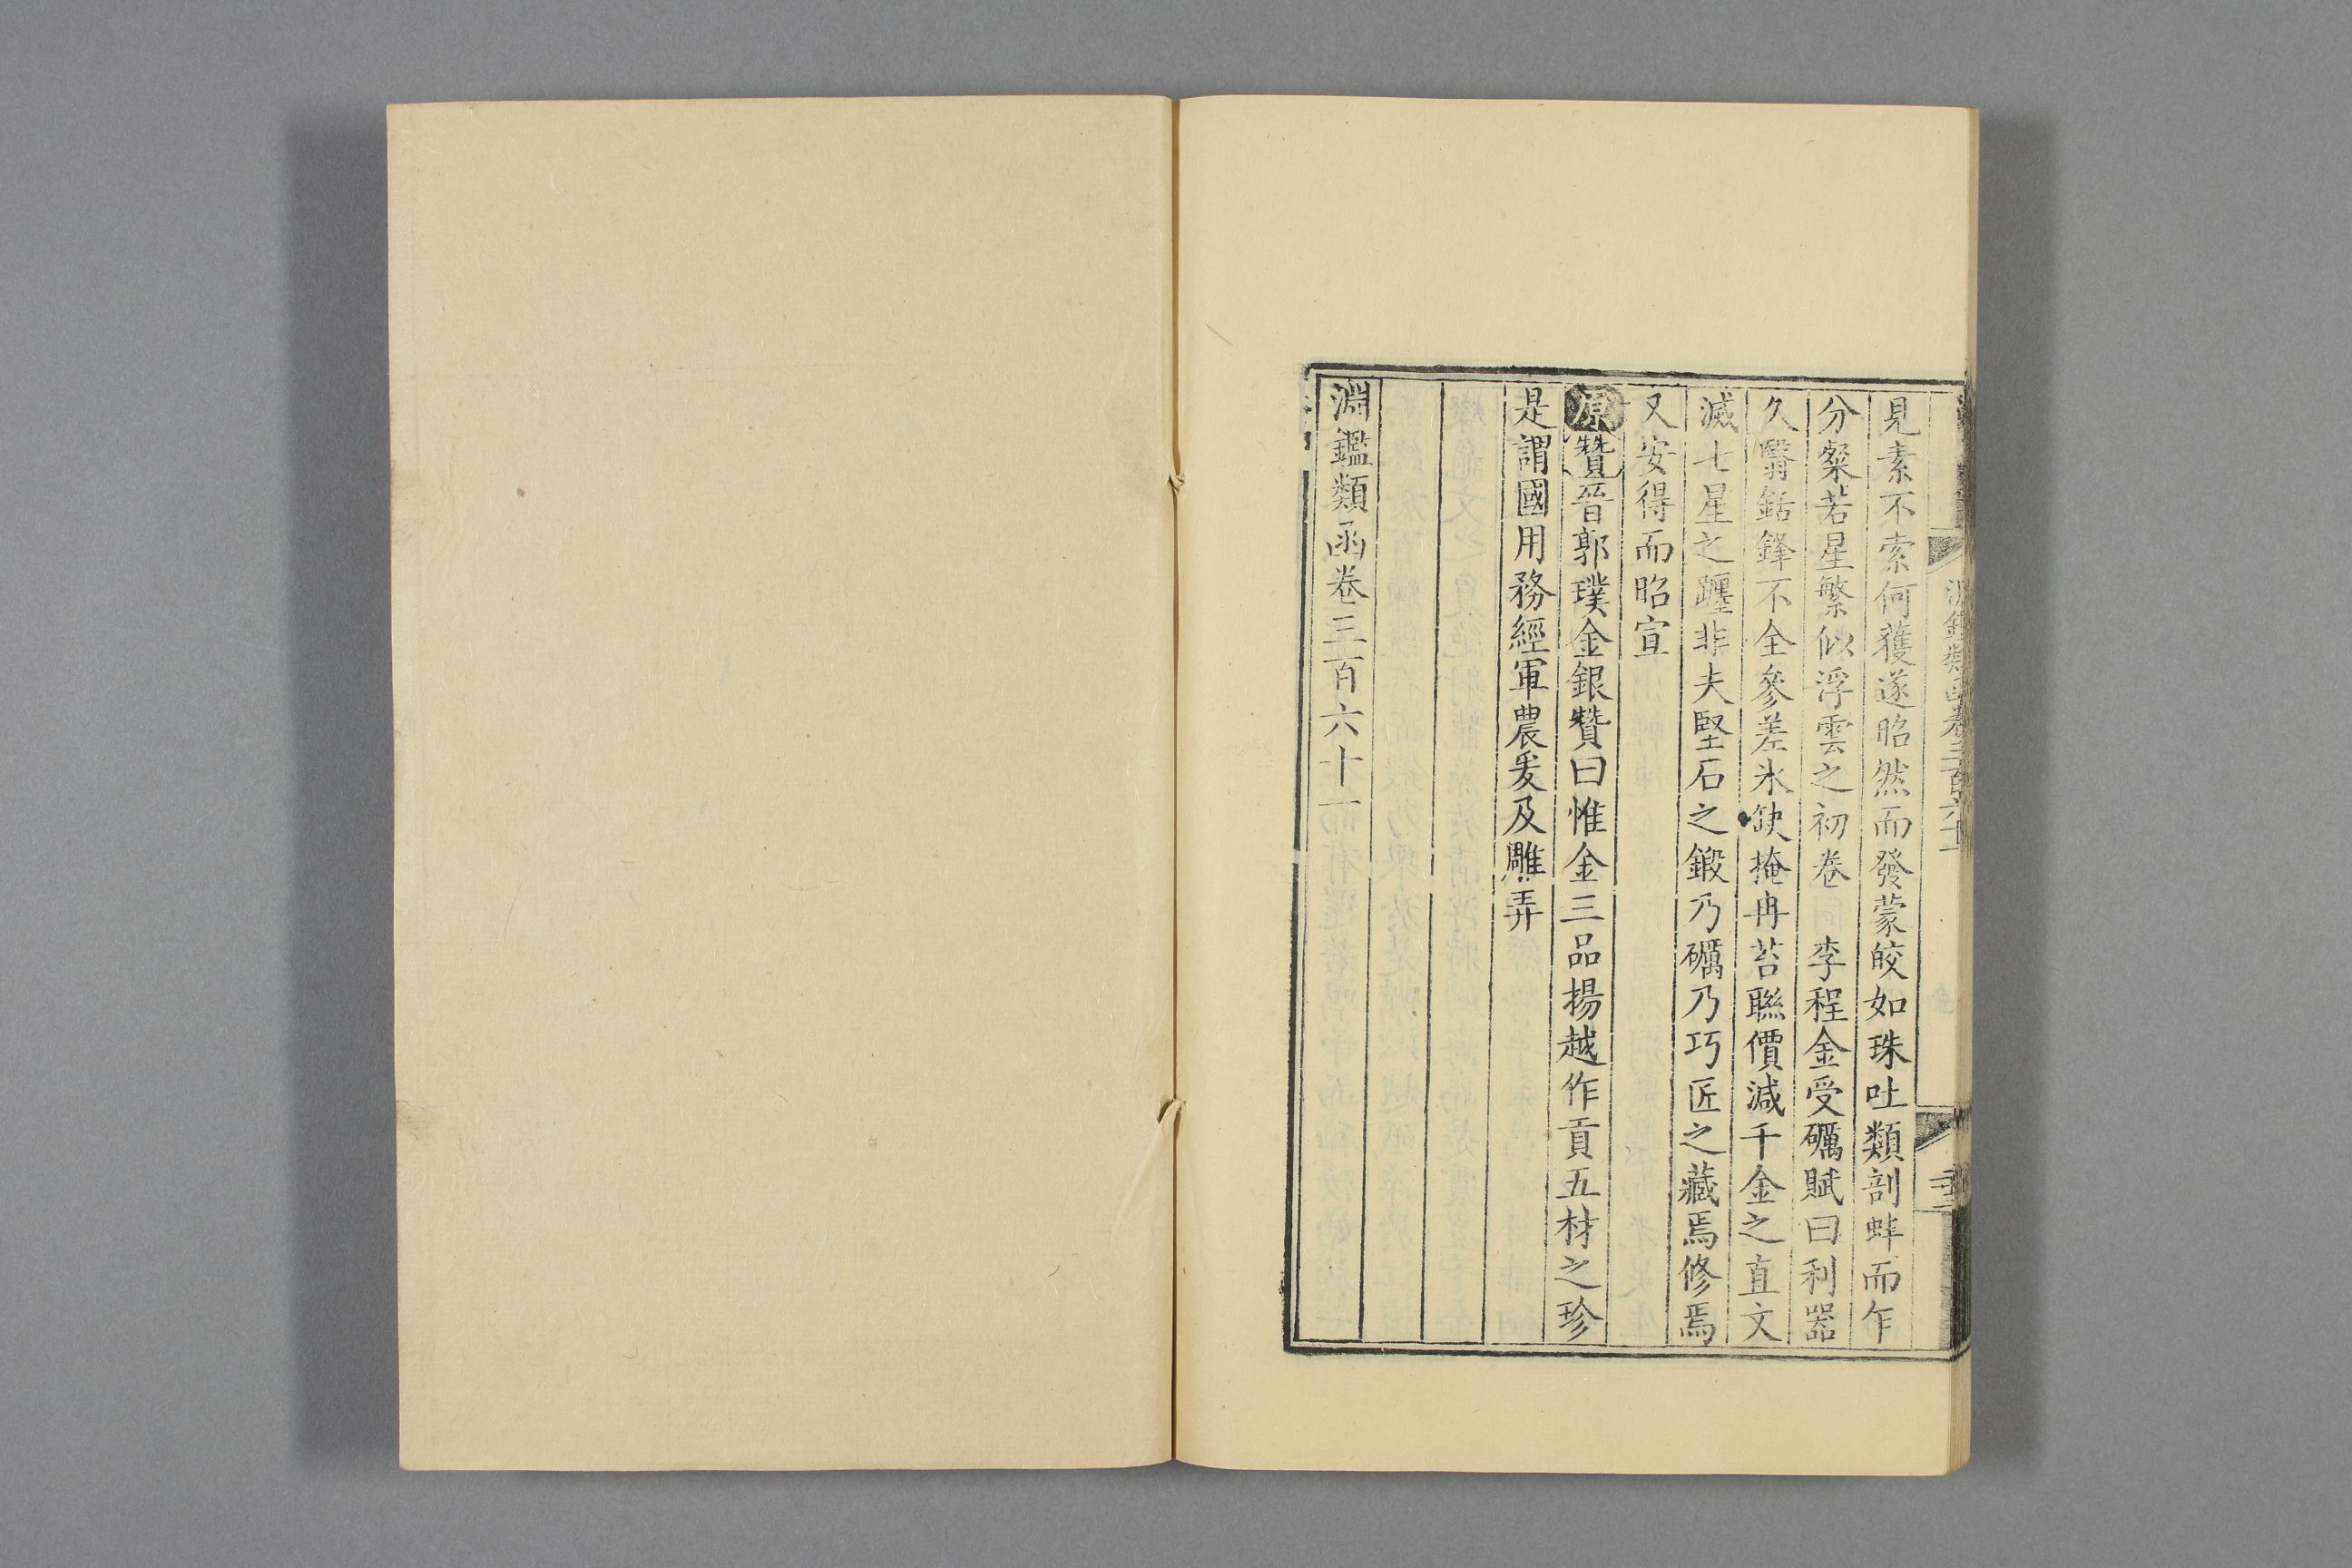 淵鑑類函卷三百六十一
見素不索何獲遂昭然而發蒙皎如珠吐類剖蚌而乍
分粲若星繁似浮雲之初卷 李程金受礪賦曰利器
久翳銛鋒不全參差氷缺掩冉苔聯價減千金之直文
滅七星之躔非夫堅石之鍛乃礪乃巧匠之藏焉修焉
又安得而昭宣
原贊晉郭璞金銀贊曰惟金三品揚越作貢五材之珍
是謂國用務經軍農爰及雕弄
淵鑑類函卷三百六十一